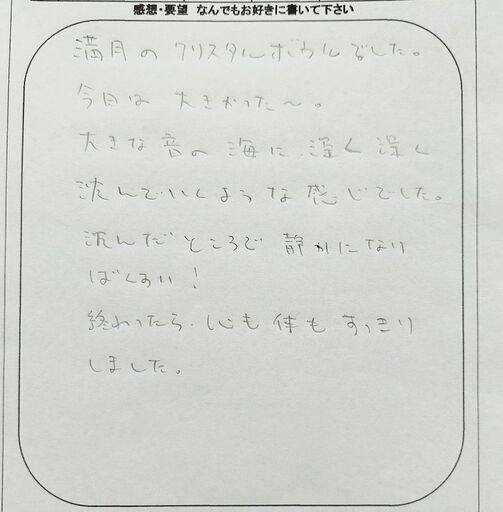 感想・要望 なんでもお好きに書いて下さい
満月のクリスタルボウルでした。
今日は大きかった〜。
大きな音の海に、深く深く
沈んでいくような感じでした。
沈んだところで静かになり
ばくすい！
終わったら、心も体もすっきり
しました。